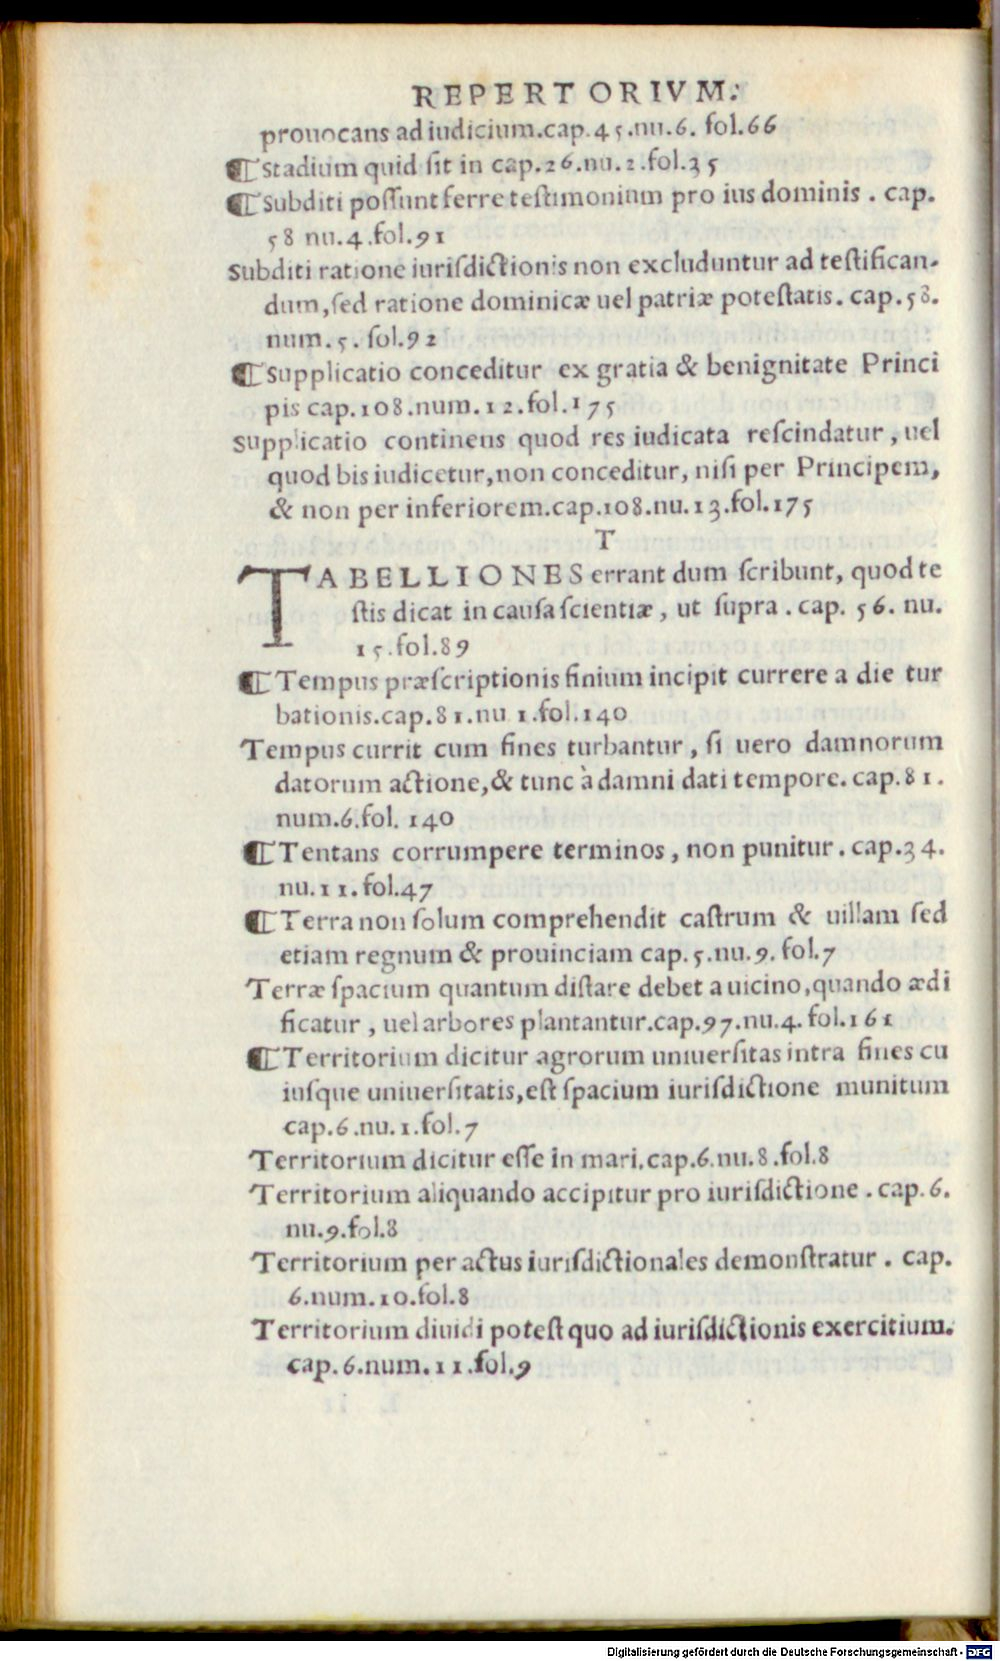 REPERTORIVM.
prouocans ad iudicium.cap.45.nu.6. fol.66
¶ Stadium quid sit in cap.26.nu.2.fol.35
¶ Subditi possunt ferre testimonium pro ius dominis . cap.
58 nu.4.fol.91
Subditi ratione iurisdictionis non excluduntur ad testifican-
dum,sed ratione dominicæ uel patriæ potestatis. cap.58.
num.5. fol.92
¶ Supplicatio conceditur ex gratia & benignitate Princi
pis cap.108.num.12.fol.175
Supplicatio continens quod res iudicata rescindatur, uel
quod bis iudicetur,non conceditur, nisi per Principem,
& non per inferiorem.cap.108.nu.13.fol.175
T
TABELLIONES errant dum scribunt, quod te
stis dicat in causa scientiæ, ut supra . cap. 56. nu.
15.fol.89
¶ Tempus præscriptionis finium incipit currere a die tur
bationis.cap.81.nu 1.fol.140
Tempus currit cum fines turbantur, si uero damnorum
datorum actione,& tunc à damni dati tempore. cap.81.
num.6.fol. 140
¶ Tentans corrumpere terminos, non punitur. cap.34.
nu.11.fol.47
¶ Terra non solum comprehendit castrum & uillam sed
etiam regnum & prouinciam cap.5.nu.9. fol.7
Terræ spacium quantum distare debet a uicino,quando ædi
ficatur, uel arbores plantantur.cap.97.nu.4. fol.161
¶ Territorium dicitur agrorum uniuersitas intra fines cu
iusque uniuersitatis,est spacium iurisdictione munitum
cap.6.nu.1.fol.7
Territorium dicitur esse in mari.cap.6.nu.8.fol.8
Territorium aliquando accipitur pro iurisdictione . cap.6.
nu.9.fol.8
Territorium per actus iurisdictionales demonstratur . cap.
6.num.10.fol.8
Territorium diuidi potest quo ad iurisdictionis exercitium.
cap.6.num.11.fol.9
Digitalisierung gefördert durch die Deutsche Forschungsgemeinschaft - DFG